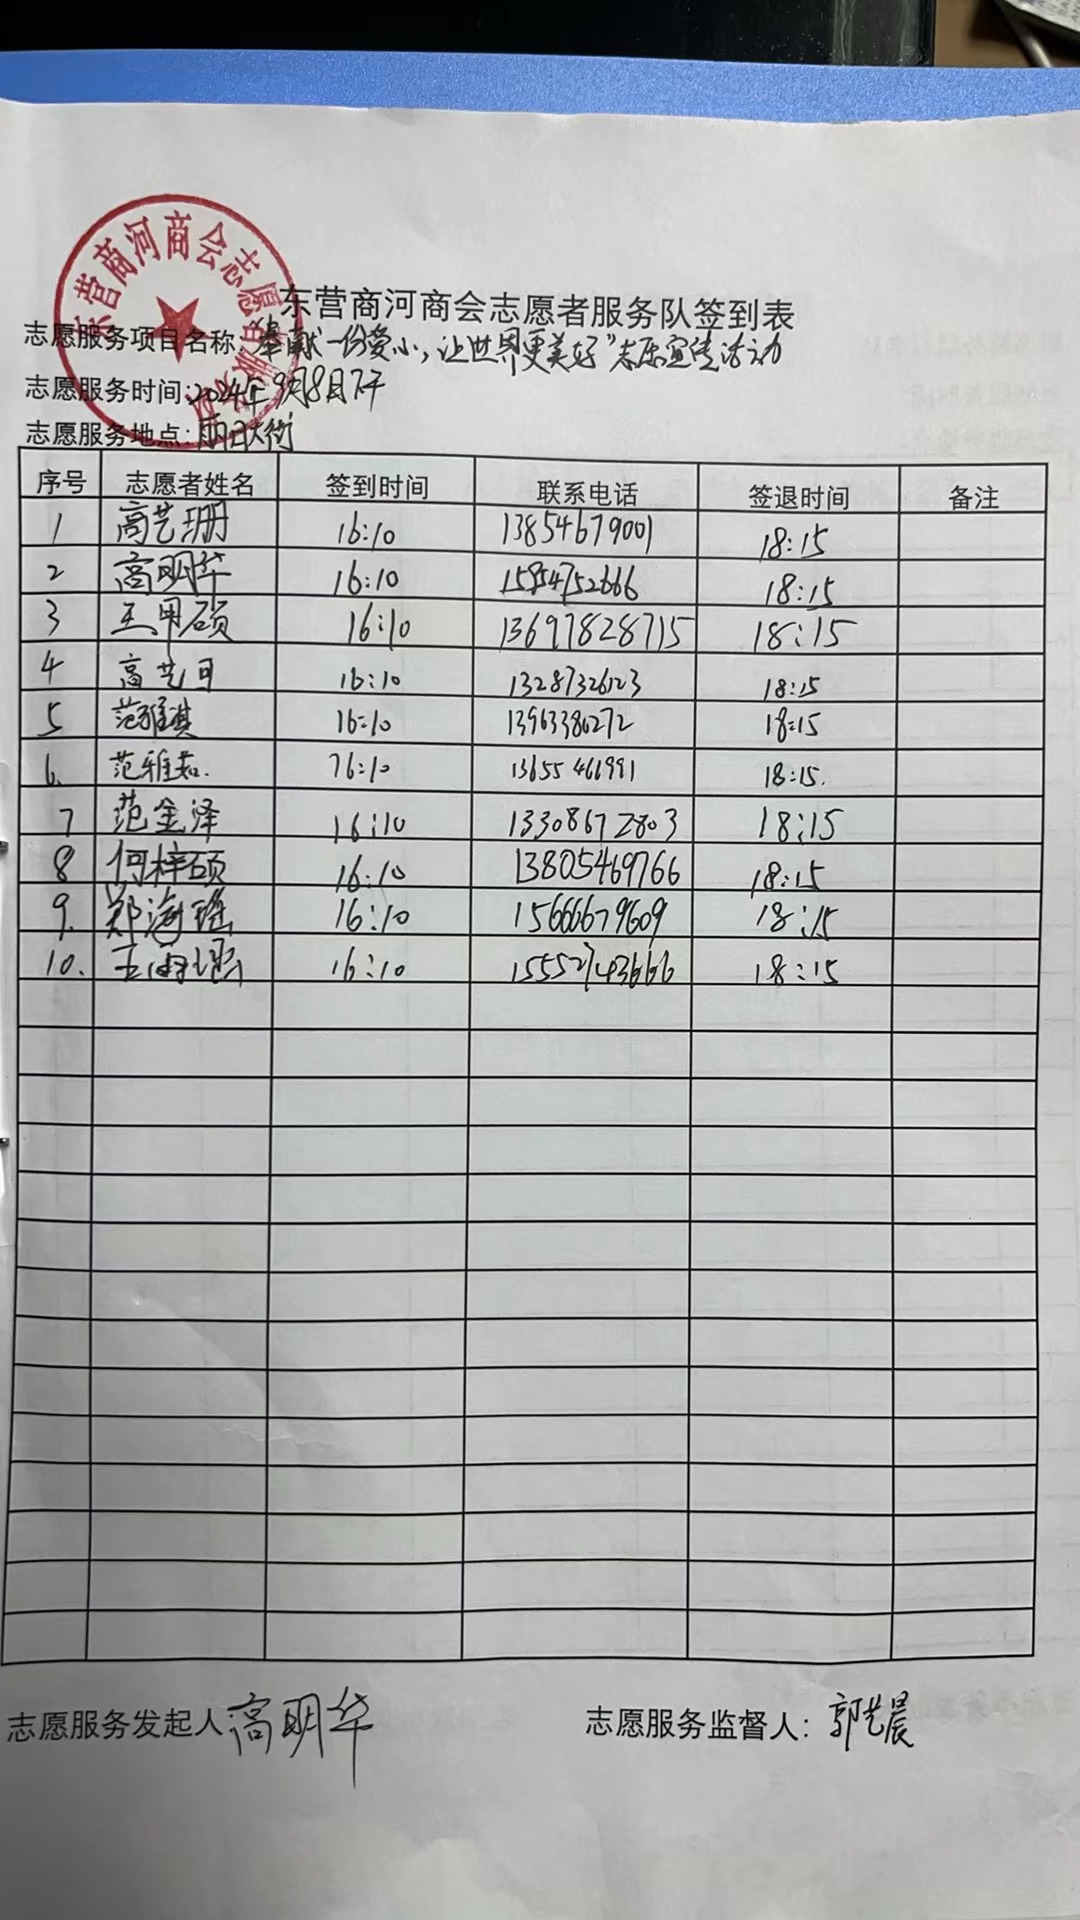 东营商河商会志愿者服务队
东营商河商会志愿者服务队签到表
志愿服务项目名称:"奉献一份爱心,让世界更美好"志愿宣传活动
志愿服务时间:2024年9月8日下午
志愿服务地点:大街
序号 志愿者姓名 签到时间 联系电话 签退时间 备注
1 高艺珊 16:10 13854679001 18:15
2 高明华 16:10 15954752666 18:15
3 王甲硕 16:10 13697828715 18:15
4 高艺可 16:10 13287326123 18:15
5 范雅淇 16:10 13963380272 18:15
6. 范雅茹. 16:10 13655466991 18:15.
7 范金泽 16:10 13308672803 18:15
8 何梓硕 16:10 13805469766 18:15
9. 郑海瑶 16:10 15666679609 18:15
10. 王雨涵 16:10 18:15
志愿服务发起人:高明华 志愿服务监督人:郭艺晨